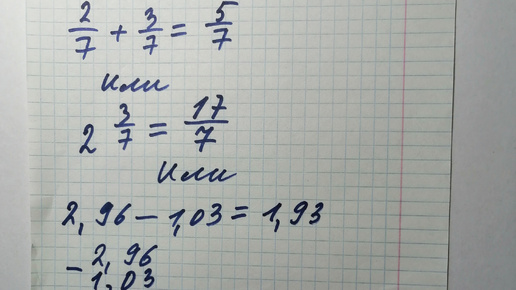 2/7 + 3/7 = 5/7
или
2 3/7 = 17/7
или
2,96 - 1,03 = 1,93
- 2,96
1,03